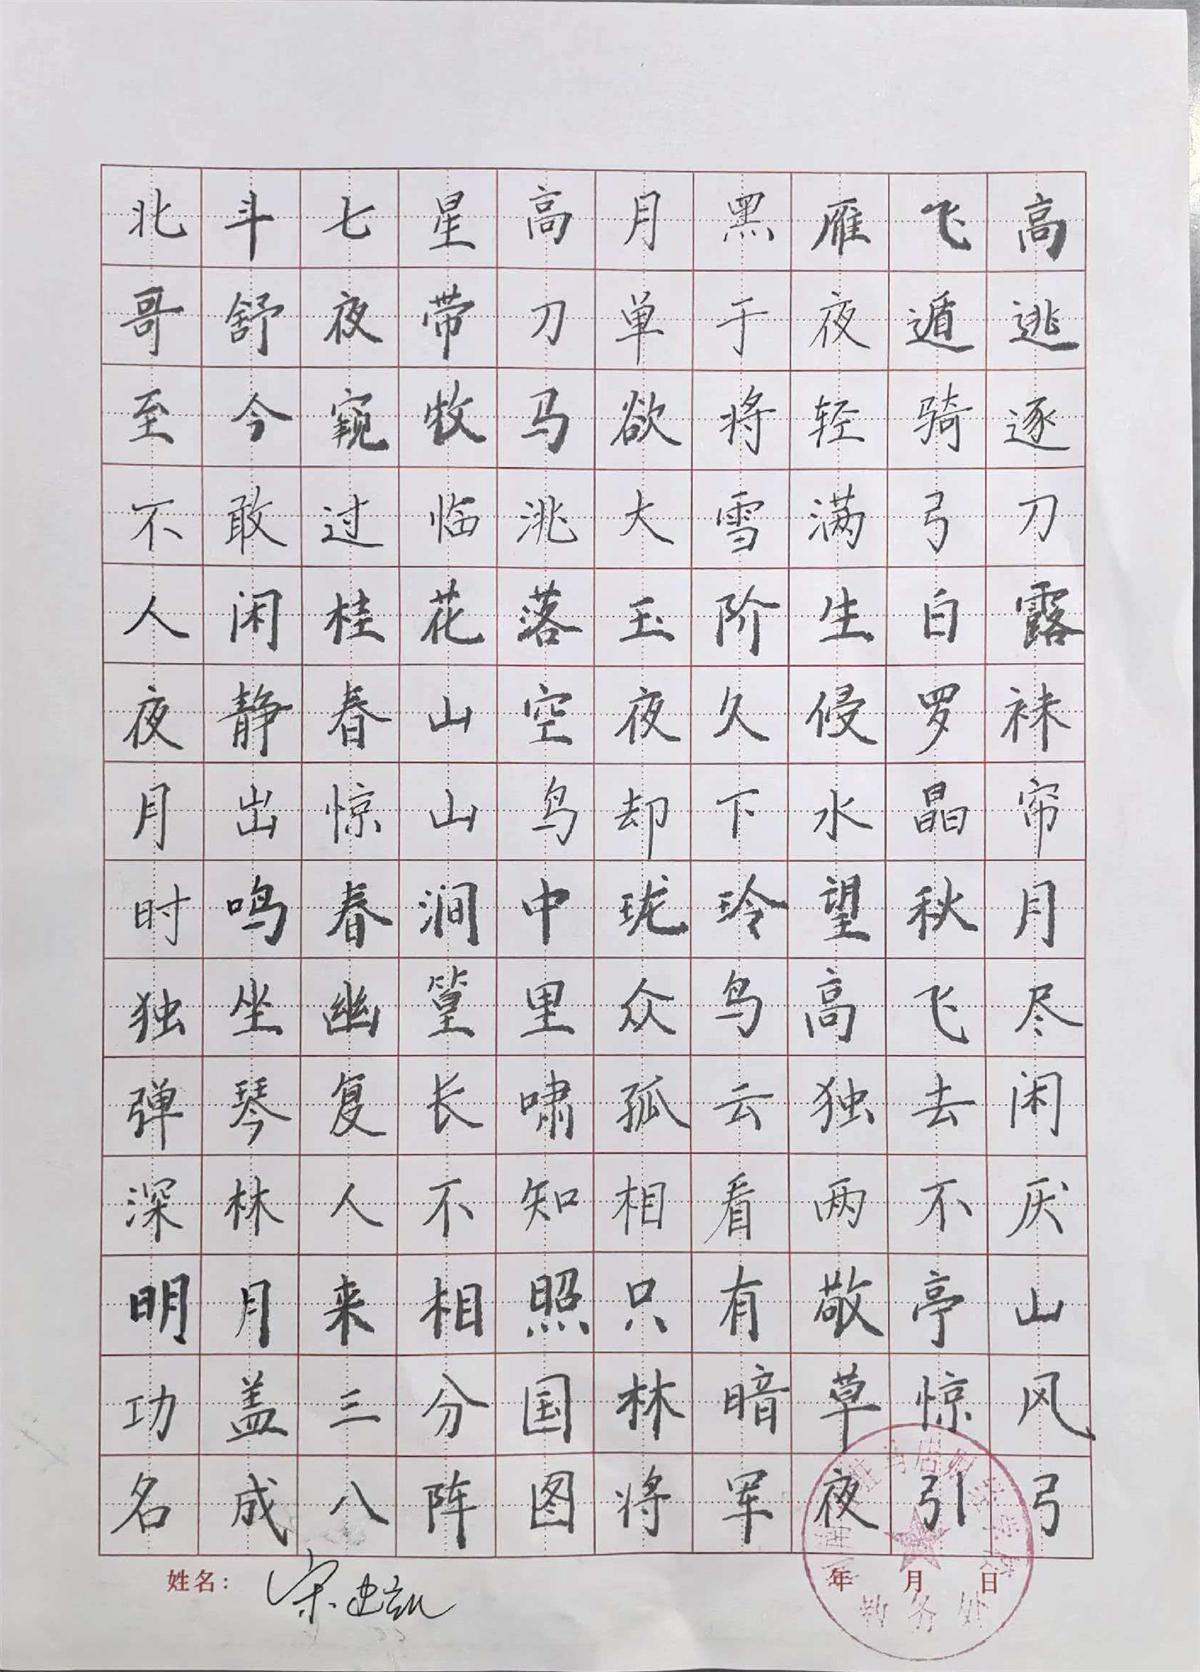 北斗七星高月黑雁飞高
哥舒夜带刀单于夜遁逃
至今窥牧马欲将轻骑逐
不敢过临洮大雪满弓刀
人闲桂花落玉阶生白露
夜静春山空夜久侵罗袜
月出惊山鸟却下水晶帘
时鸣春涧中珑玲望秋月
独坐幽篁里众鸟高飞尽
弹琴复长啸孤云独去闲
深林人不知相看两不厌
明月来相照只有敬亭山
功盖三分国林暗草惊风
名成八阵图将军夜引弓
姓名：宋
年 月 日
教务处